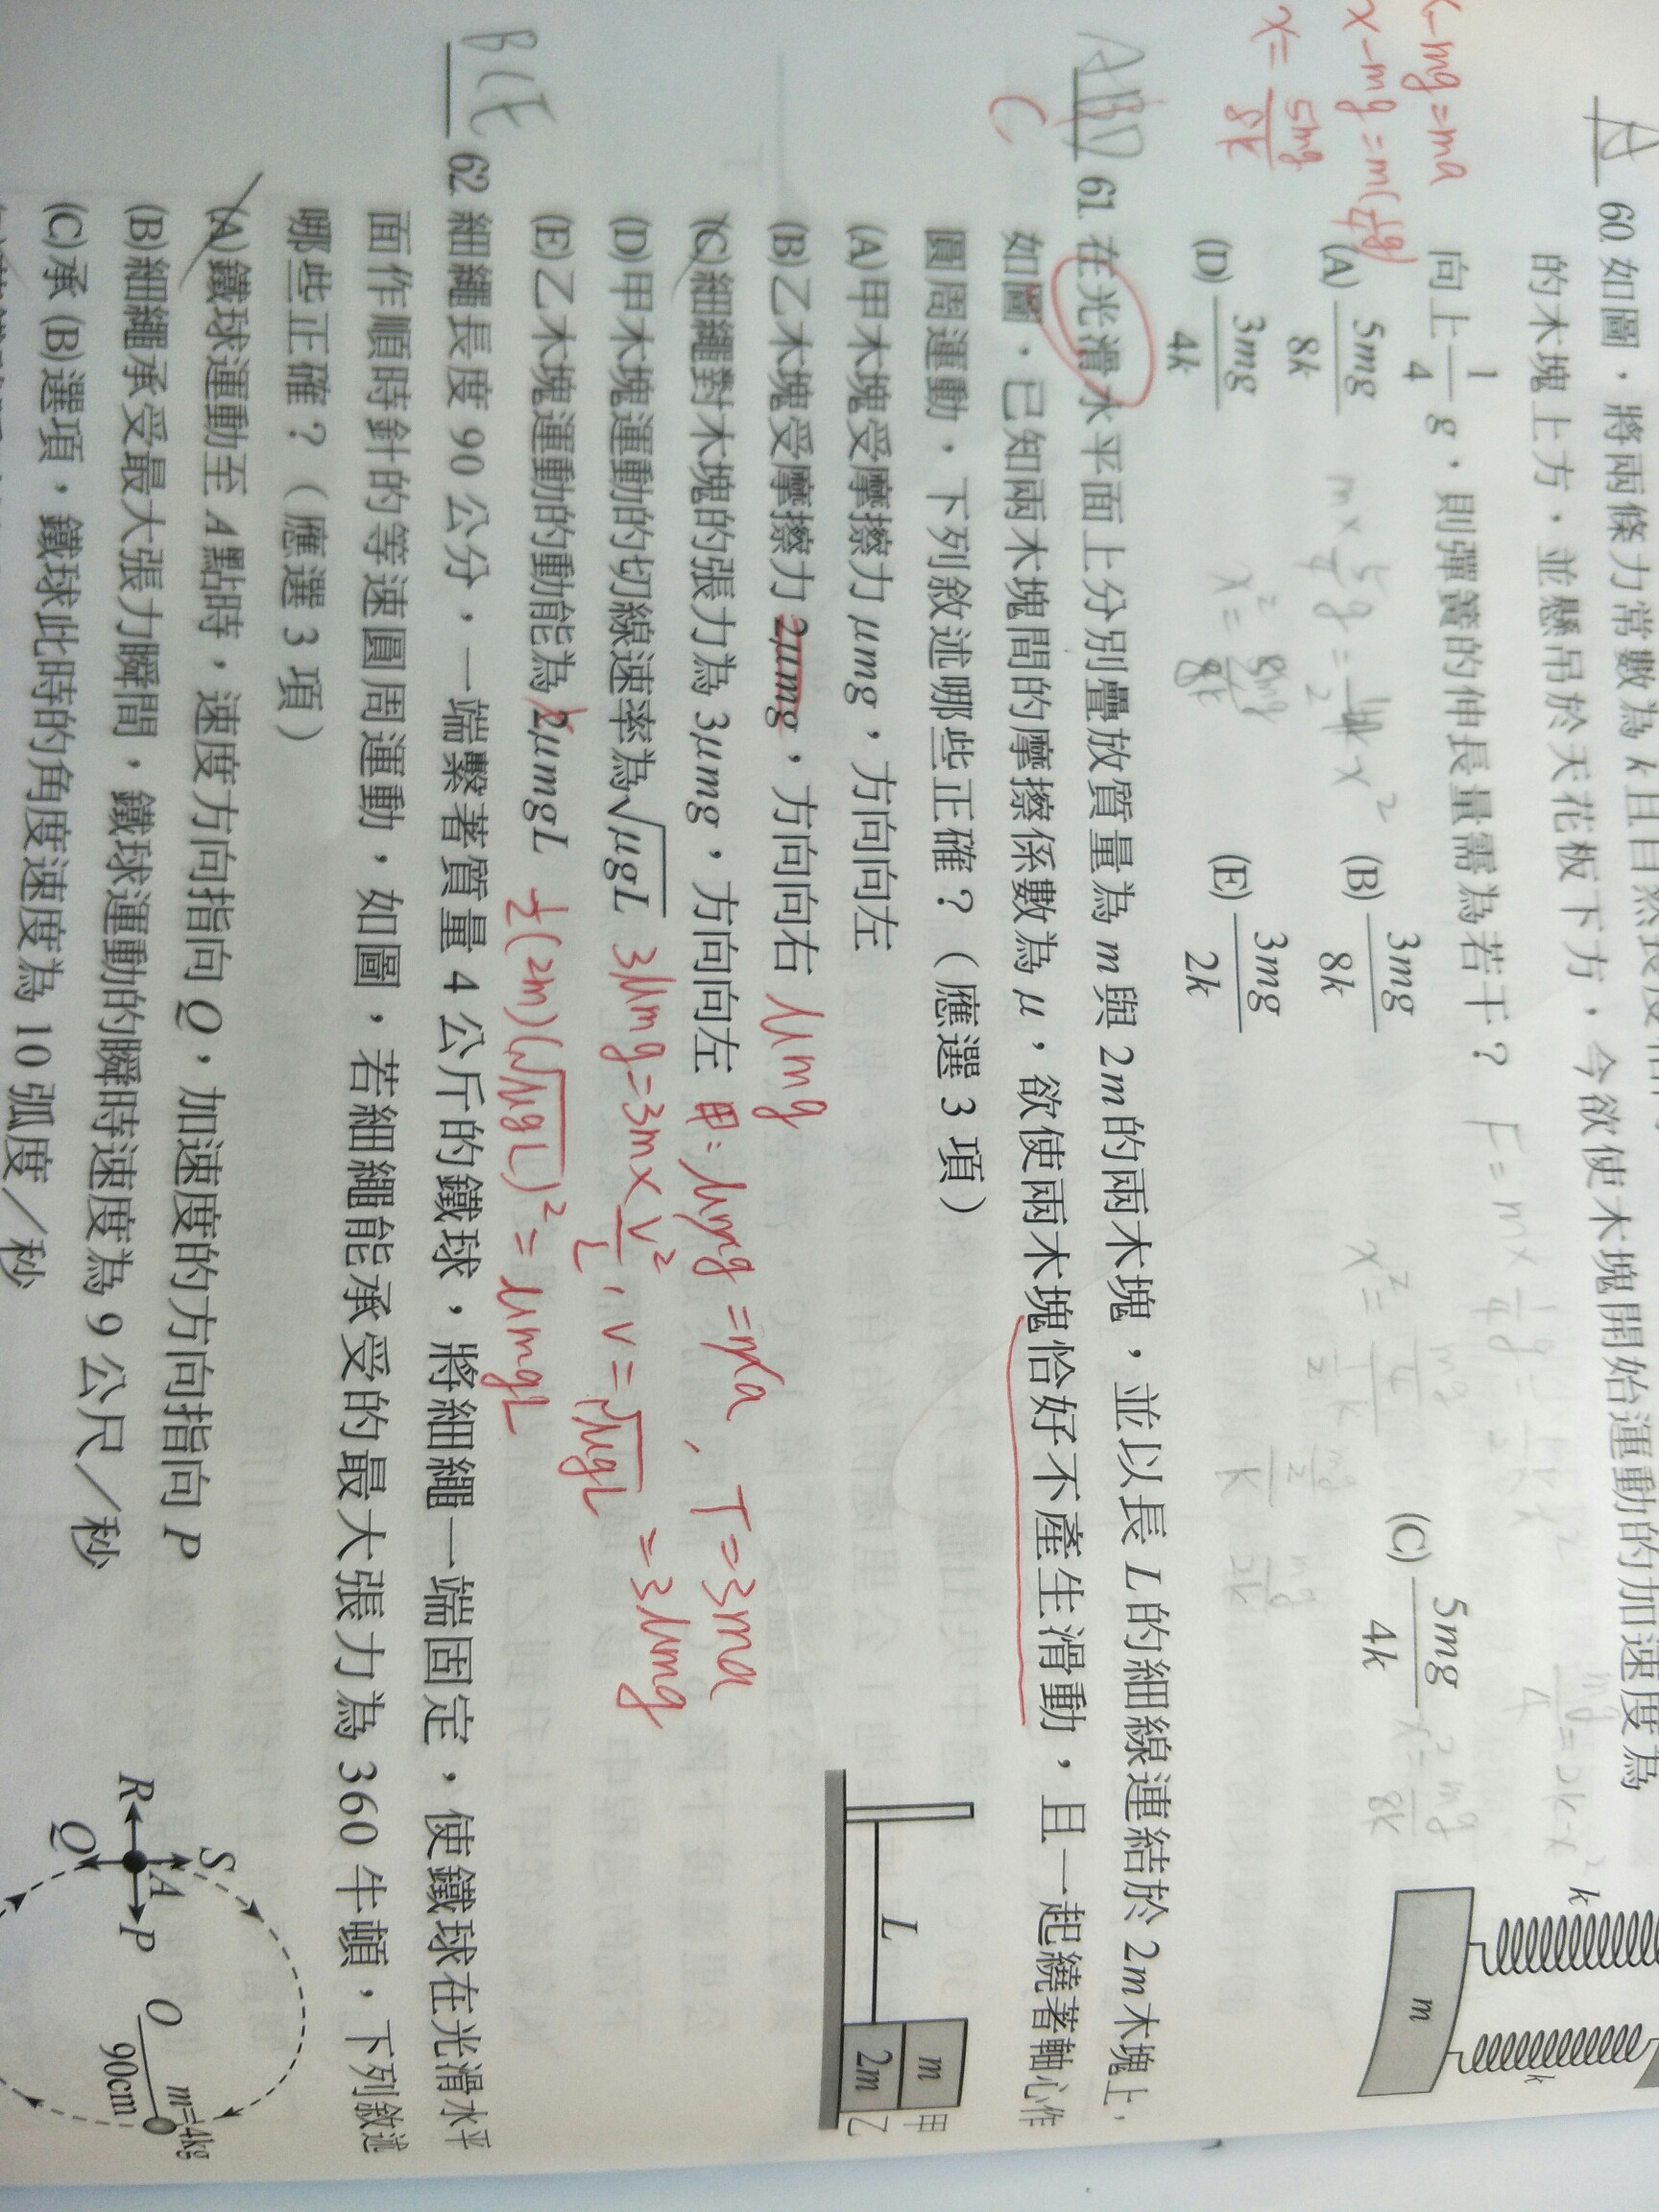 A 60. 如圖，將兩條力常數為 k 且自然長度相
的木塊上方，並懸吊於天花板下方，今欲使木塊開始運動的加速度為
向上 1/4 g，則彈簧的伸長量需為若干？ F = m×
(A) 5mg/8k (B) 3mg/8k (C) 5mg/4k
(D) 3mg/4k (E) 3mg/2k
x-mg=ma
x-mg=m(1/4 g)
x= 5mg/8k
k
k
m
ABD 61. 在光滑水平面上分別疊放質量為 m 與 2m的兩木塊，並以長 L 的細線連結於 2m木塊上，
C
如圖，已知兩木塊間的摩擦係數為 μ，欲使兩木塊恰好不產生滑動，且一起繞著軸心作
圓周運動，下列敘述哪些正確？（應選 3 項）
(A)甲木塊受摩擦力 μmg，方向向左
(B)乙木塊受摩擦力 2μmg，方向向右 μmg
(C)細繩對木塊的張力為 3μmg，方向向左 甲：μmg=ma、T=3ma
=3μmg
(D)甲木塊運動的切線速率為√μgL 3μmg=3m×v²/L，v=√μgL
(E)乙木塊運動的動能為 2μmgL 1/2(2m)(√μgL)²=μmgL
L
m 甲
2m 乙
BCE 62. 細繩長度 90 公分，一端繫著質量 4 公斤的鐵球，將細繩一端固定，使鐵球在光滑水平
面作順時針的等速圓周運動，如圖，若細繩能承受的最大張力為 360 牛頓，下列敘述
哪些正確？（應選 3 項）
(A)鐵球運動至 A 點時，速度方向指向 Q，加速度的方向指向 P
(B)細繩承受最大張力瞬間，鐵球運動的瞬時速度為 9 公尺／秒
(C)承 (B)選項，鐵球此時的角度速度為 10 弧度／秒
S
R A P
Q
O
90cm
m=4kg